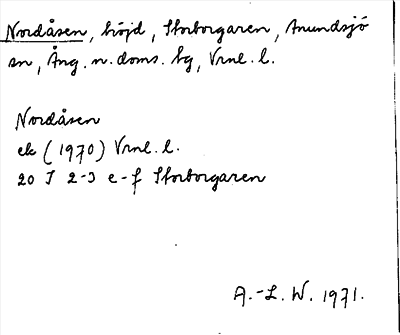 Nordåsen, höjd, Storborgaren, Anundsjö
sn, Ång. n. doms. bg, Vrnl. l.
Nordåsen
ek (1970) Vrnl. l.
20 I 2-3 e-f Storborgaren
A.-L. W. 1971.